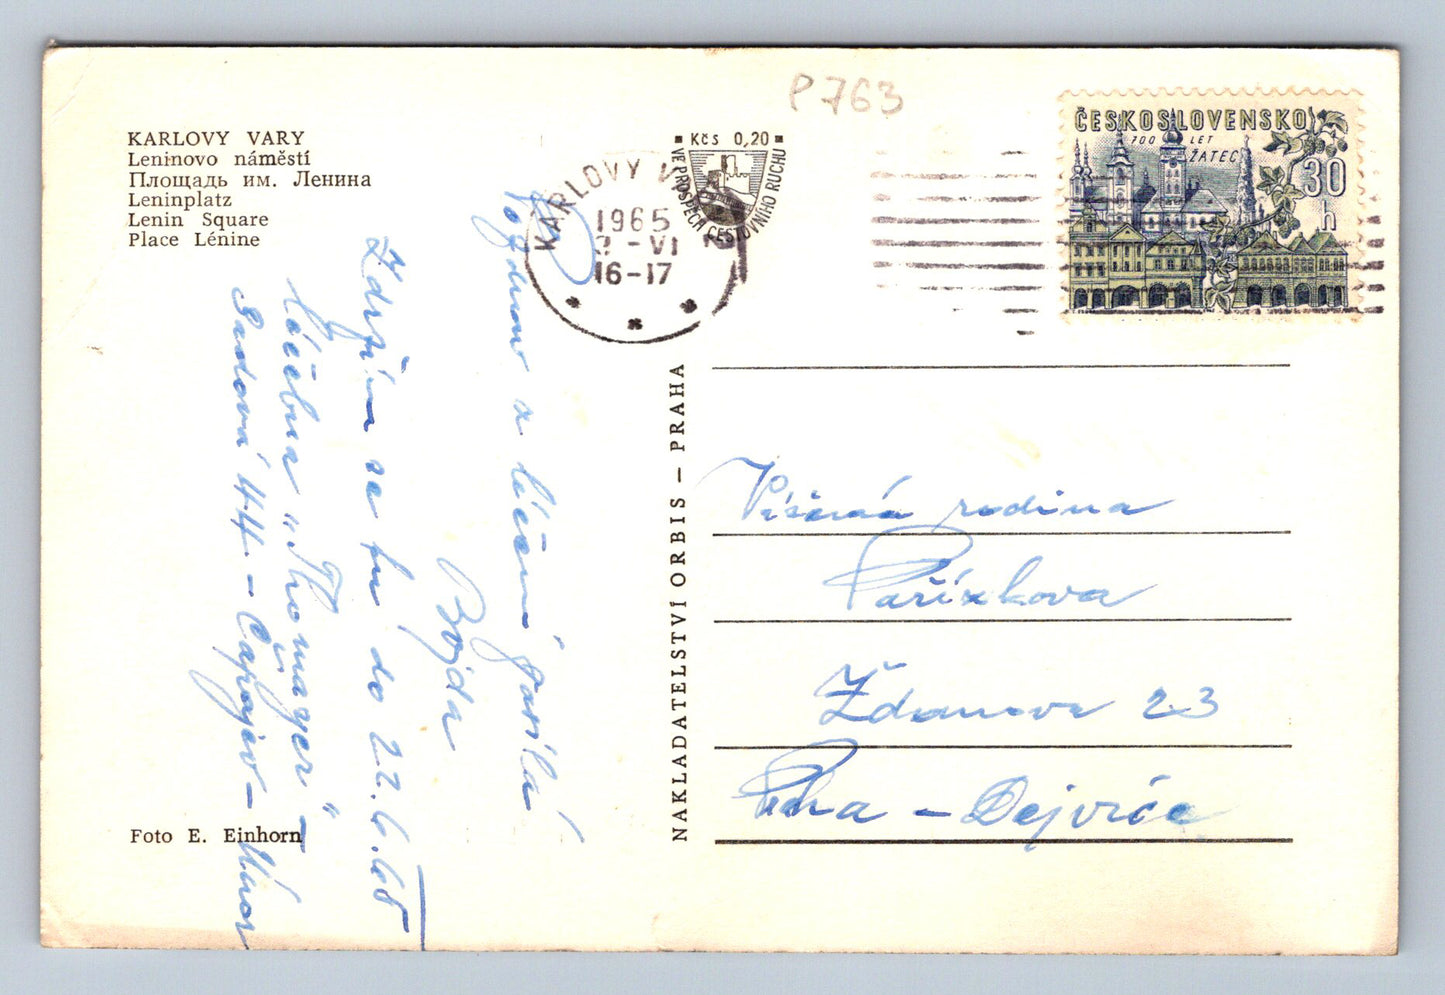 P763
KARLOVY VARY
Leninovo náměstí
Площадь им. Ленина
Leninplatz
Lenin Square
Place Lénine
Kčs 0,20
VE PROSPĚCH CESTOVNÍHO RUCHU
KARLOVY VARY
1965
-VI
16-17
ČESKOSLOVENSKO
700 LET
ŽATEC
30
h
Pozdrav z léčení posílá
Bojda
Zdržím se tu do 22.6.65
Léčebna "Thomayer" –
Sadová 44 – Čapajev –
NAKLADATELSTVÍ ORBIS – PRAHA
Vážená rodina
Pařízkova
Ždanova 23
Praha – Dejvice
Foto E. Einhorn